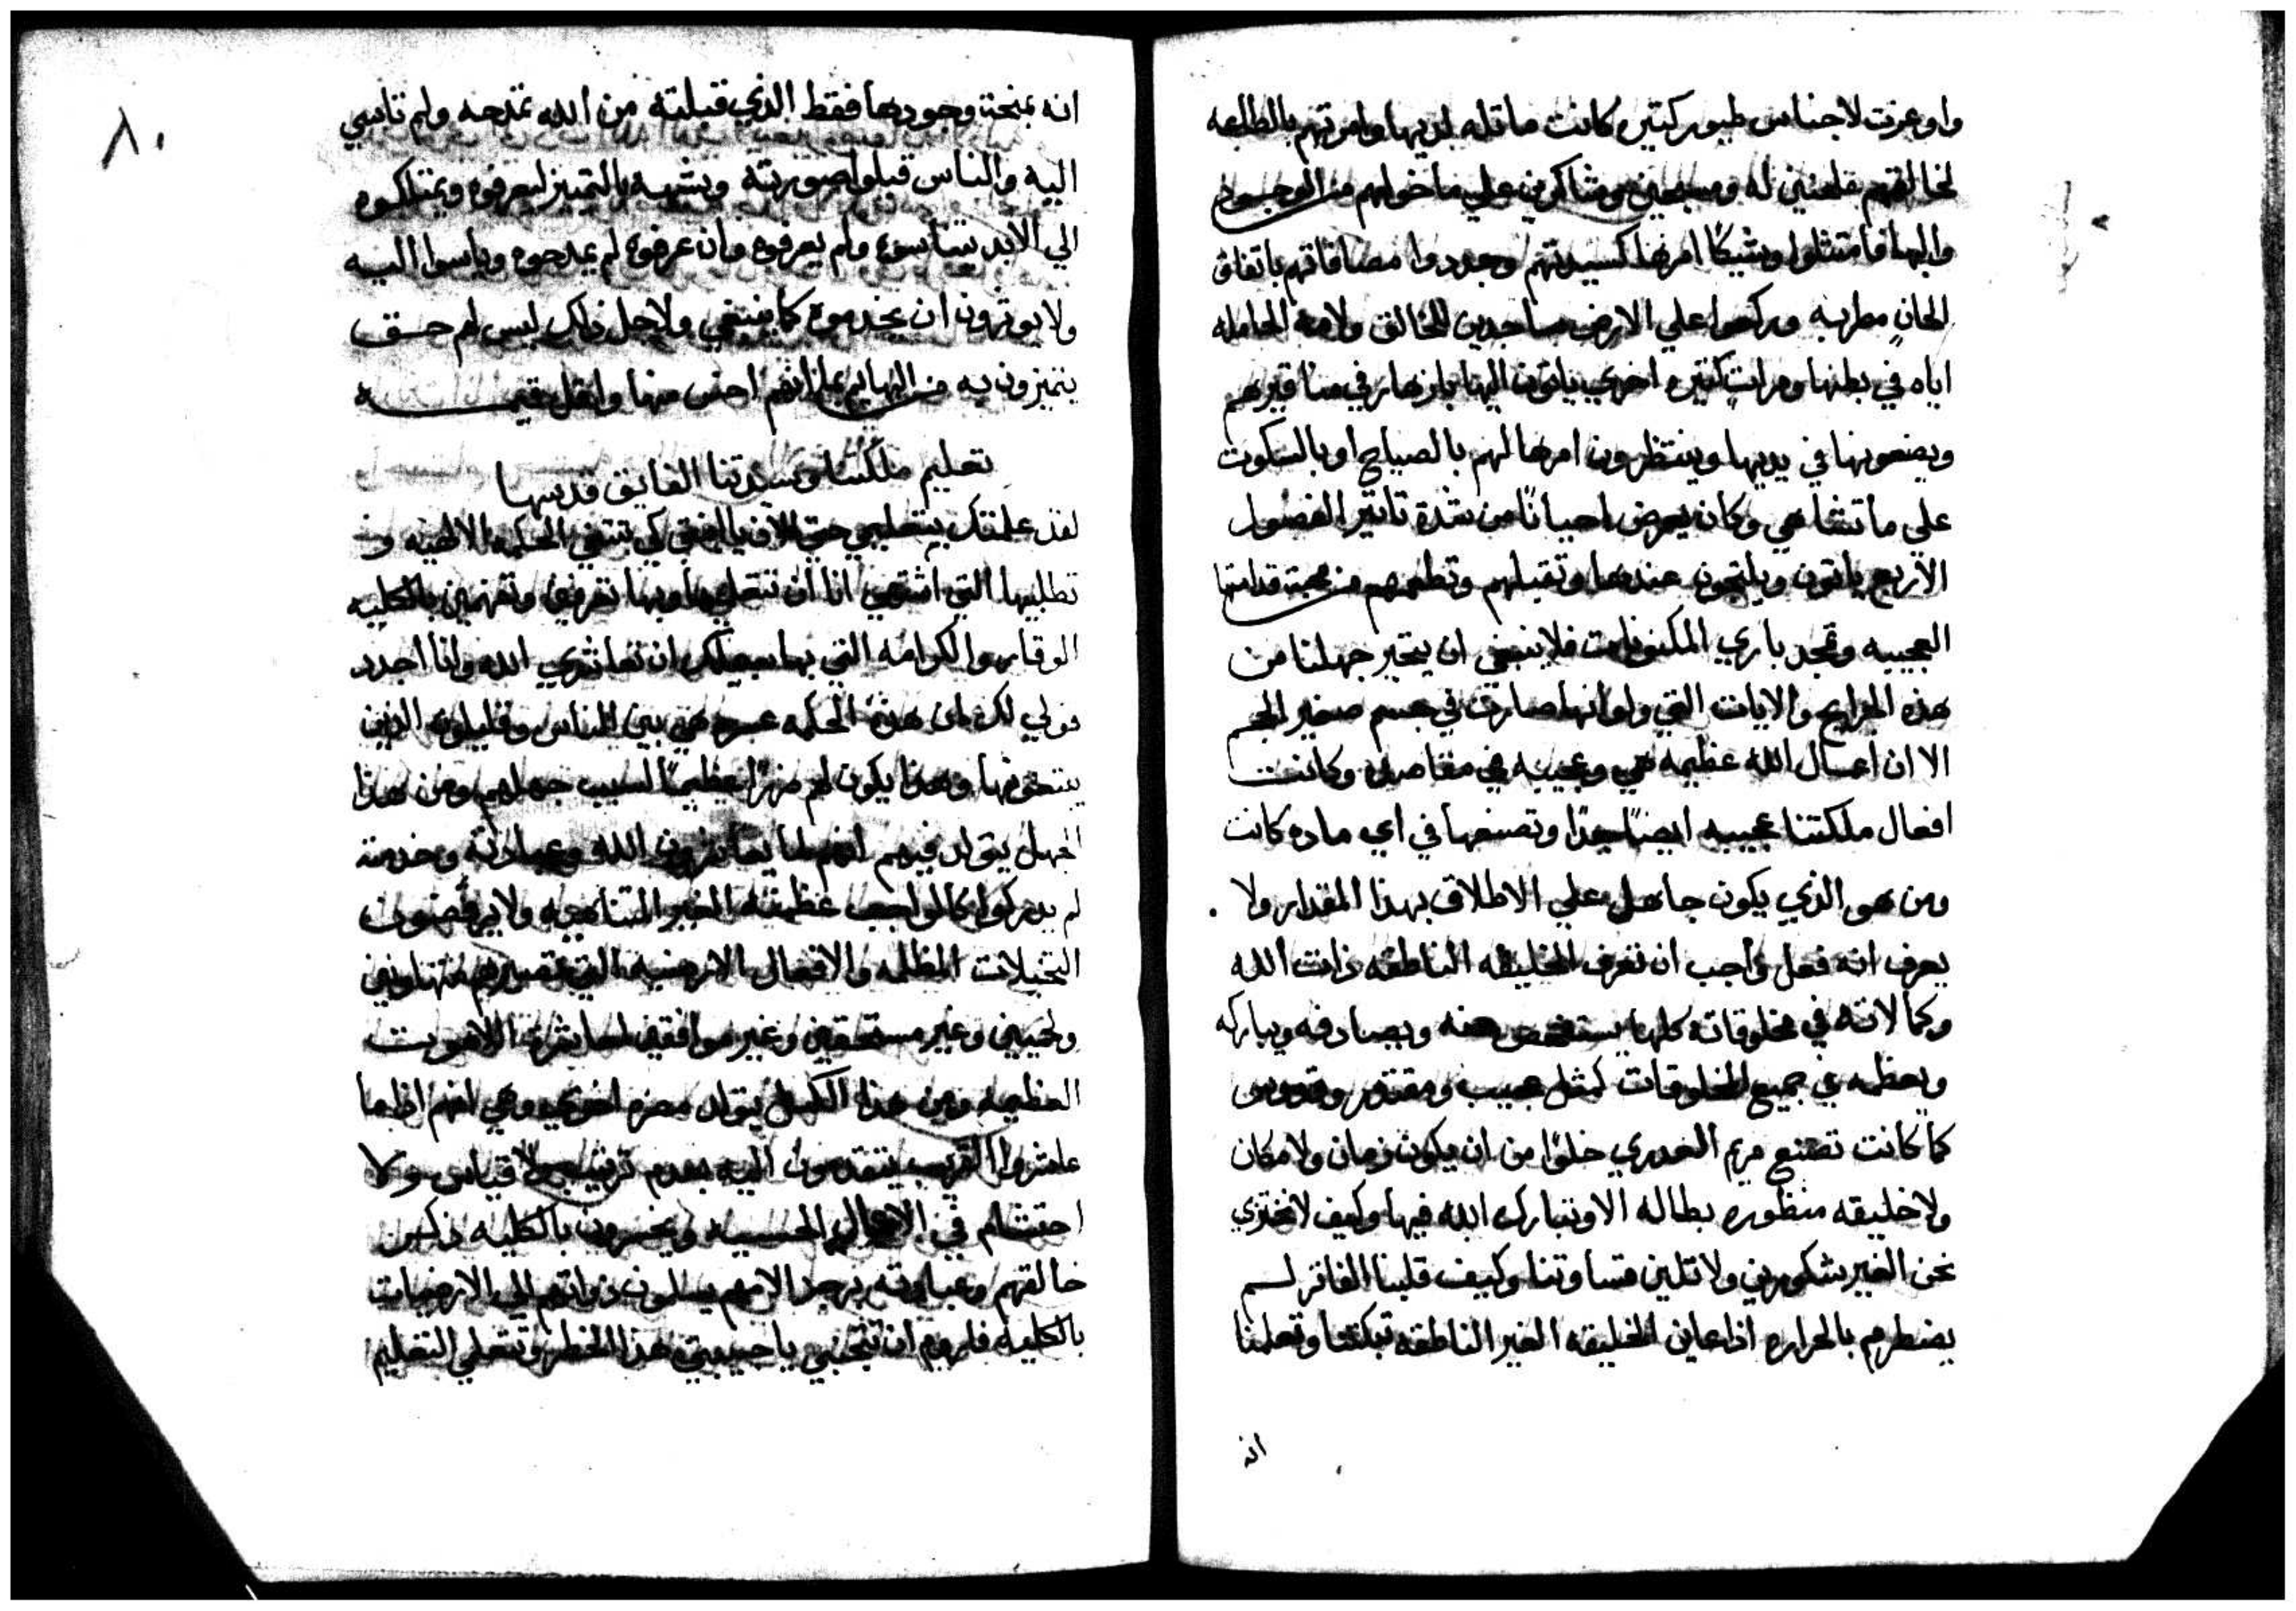 واوعزت لاجناس طيور كتيره كانت ماتله لديها وامرتهم بالطلبه
لخالقهم مذعنين له ومسبحين وشاكرين علي ما خولهم من الوجود
والبها فامتتلوا وشيكًا امرها كسيدتهم وجددوا مصافاتهم باتفاق
الحانٍ مطربه وركعوا علي الارض ساجدين للخالق ولامه الحامله
اياه في بطنها ومرات كتيره اخري ياتون اليها بازهار في مناقيرهم
ويضعونها في يديها وينتظرون امرها لهم بالصياح او بالسكوت
علي ما تشا هي وكان يعرض احيانًا من شدة تاتير الفصول
الاربع ياتون ويلتجون عندها وتقبلهم وتطعمهم من محبة قداستها
العجيبه وتمجد باري المكنونات فلا ينبغي ان يتحير جهلنا من
هذه المرايح والايات التي ولو انها صارت في جسم صغير الحجم
الا ان اعمال الله عظيمه هي وعجيبه في مقاصده وكانت
افعال ملكتنا عجيبه ايضًا جدًا وتصنعها في اي ماده كانت
ومن هو الذي يكون جاهل علي الاطلاق بهذا المقدار ولا
يعرف انه فعل واجب ان تعرف الخليقه الناطقه ذات الله
وكمالاته في مخلوقاته كلها يستفحص عنه ويصادفه ويباركه
ويعظمه في جميع المخلوقات كمثل عجيب ومقتدر وقدوس
كما كانت تصنع مريم العدري خلوًا من ان يكون زمان ولا مكان
ولا خليقه منظوره بطاله الا وتبارك الله فيها وكيف لا نختزي
نحن الغير شكورين ولا تلين قساوتنا وكيف قلبنا الفاتر لم
يضطرم بالحراره اذا عاين الخليقه الغير الناطقه تبكتنا وتعلمنا
انه
٨٠
انه بمنحة وجودها فقط الذي قبلته من الله تمدحه ولم تاسي
اليه والناس قبلوا صورته وشبهه بالتمييز ليعرفوه ويمتلكوه
الي الابد يتناسوه ولم يعرفوه وان عرفوه لم يمدحوه وياسوا اليه
ولا يوترون ان يخدموه كما ينبغي ولاجل ذلك ليس لهم حق
يتميزون به من البهايم بما انهم احس منها واقل قيمه
تعليم ملكتنا وسيدتنا الفايق قدسها
لقد علمتك بتعليمي حتي الان يا ابنتي كي تبتغي الحكمه الالهيه و
تطلبيها التي اشتهي انا ان تتعلميها وبها تعرفي وتفهمين بالكليه
الوقار والكرامه التي بها يجب لك ان تعاشري الله وانا اجدد
قولي لك ان هذه الحكمه عسره هي بين الناس وقليلون الذين
يبتغونها وهذا يكون لهم ضررًا عظيمًا لسبب جهلهم ومن هذا
الجهل يتولد فيهم انهم لما يعاشرون الله وعبادته وخدمته
لم يدركوا كالواجب عظمته الغير المتناهيه ولا يرفضون
التخيلات المظلمه والافعال الارضيه التي تصيرهم متهاونين
ولحميين وغير مستحقين وغير موافقين لمعاشرة اللاهوت
العظيمه ومن هذا الكسل يتولد مضره اخري وهي انهم اذا ما
عاشروا القريب يتقدمون اليه بعدم ترتيب ولا قياس ولا
احتشام في الاعمال الحسيه ويخسرون بالكليه ذكر
خالقهم وعبادته بهذا الامر يسلمون ذواتهم الي الارضيات
بالكليه فاريد ان تتجنبي يا حبيبتي هذا الخطر وتتعلمي التعليم